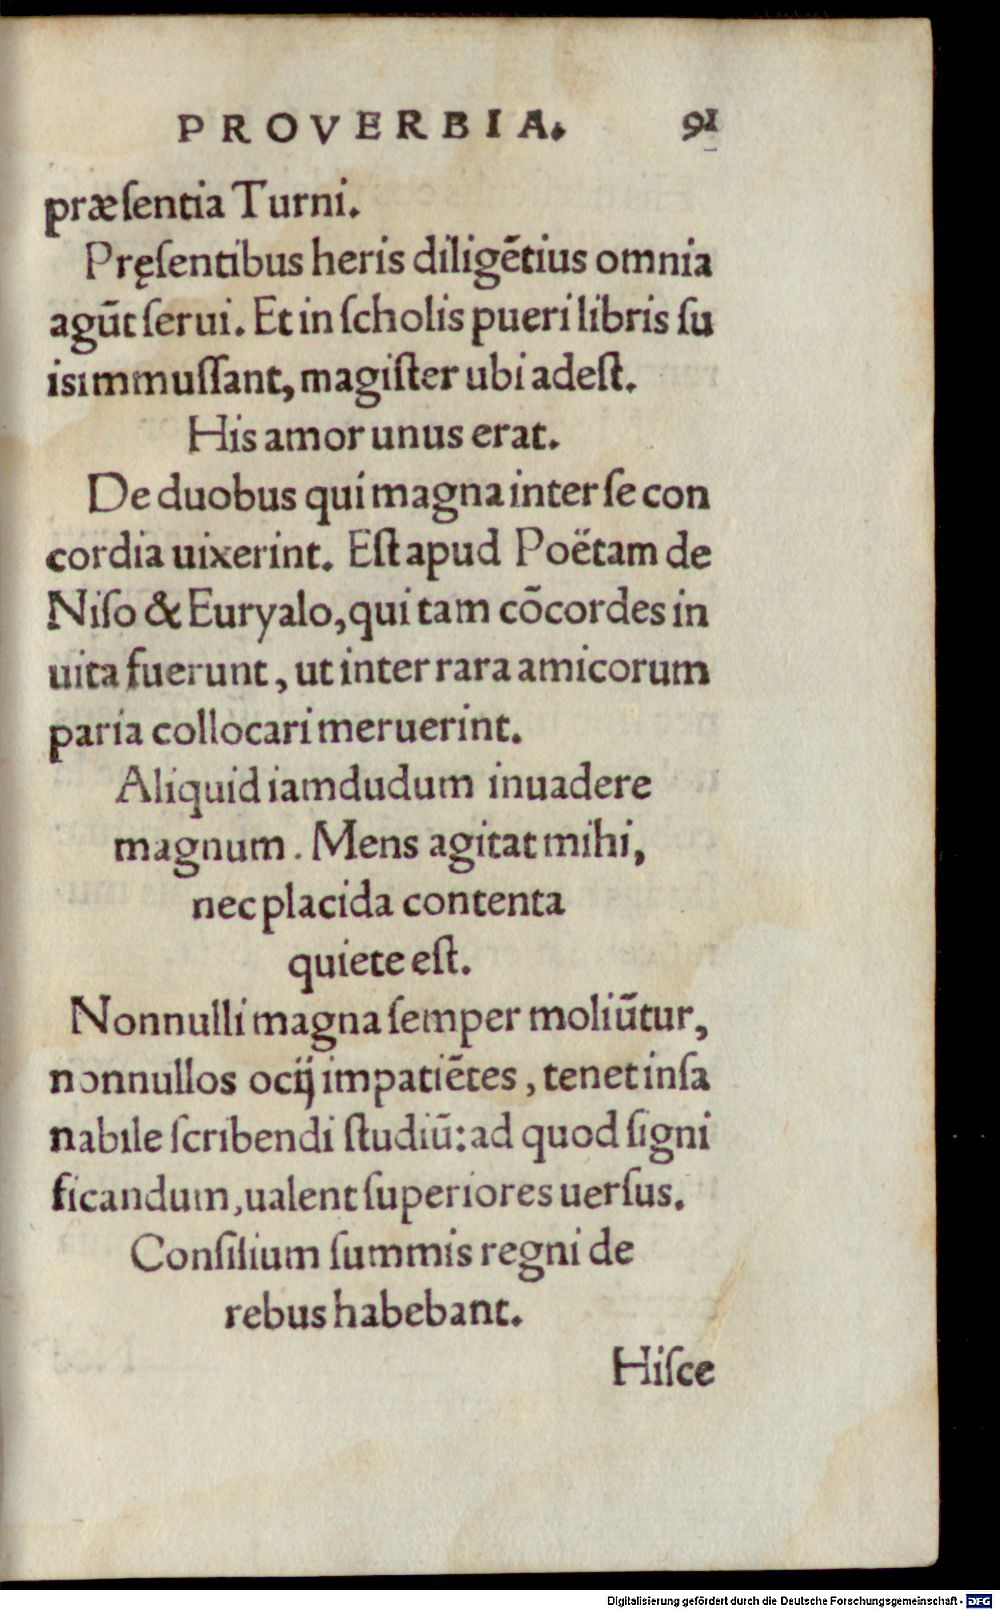 PROVERBIA. 91
præſentia Turni.
Pręſentibus heris diligẽtius omnia
agũt ſerui. Et in ſcholis pueri libris ſu
is immuſſant, magiſter ubi adeſt.
His amor unus erat.
De duobus qui magna inter ſe con
cordia uixerint. Eſt apud Poëtam de
Niſo & Euryalo, qui tam cõcordes in
uita fuerunt, ut inter rara amicorum
paria collocari meruerint.
Aliquid iamdudum inuadere
magnum. Mens agitat mihi,
nec placida contenta
quiete eſt.
Nonnulli magna ſemper moliũtur,
nonnullos ocij impatiẽtes, tenet inſa
nabile ſcribendi ſtudiũ: ad quod ſigni
ficandum, ualent ſuperiores uerſus.
Conſilium ſummis regni de
rebus habebant.
Hiſce
Digitalisierung gefördert durch die Deutsche Forschungsgemeinschaft - DFG